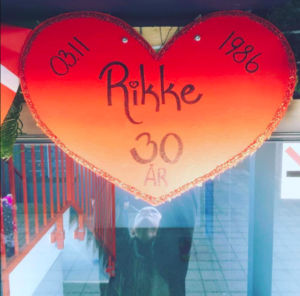 03.11 1986
Rikke
30
ÅR